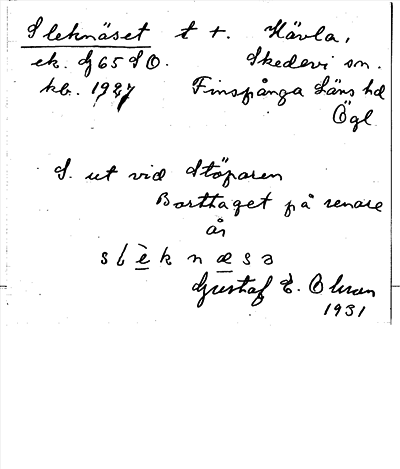 Sleknäset t +. Hävla,
ek. g 65 S O. Skedevi sn.
kb. 1927 Finspånga Läns hd
Ögl
S. ut vid Stöparen
Borttaget på senare
år
s l è k n æ s ə
Gustaf E. Olsson
1931